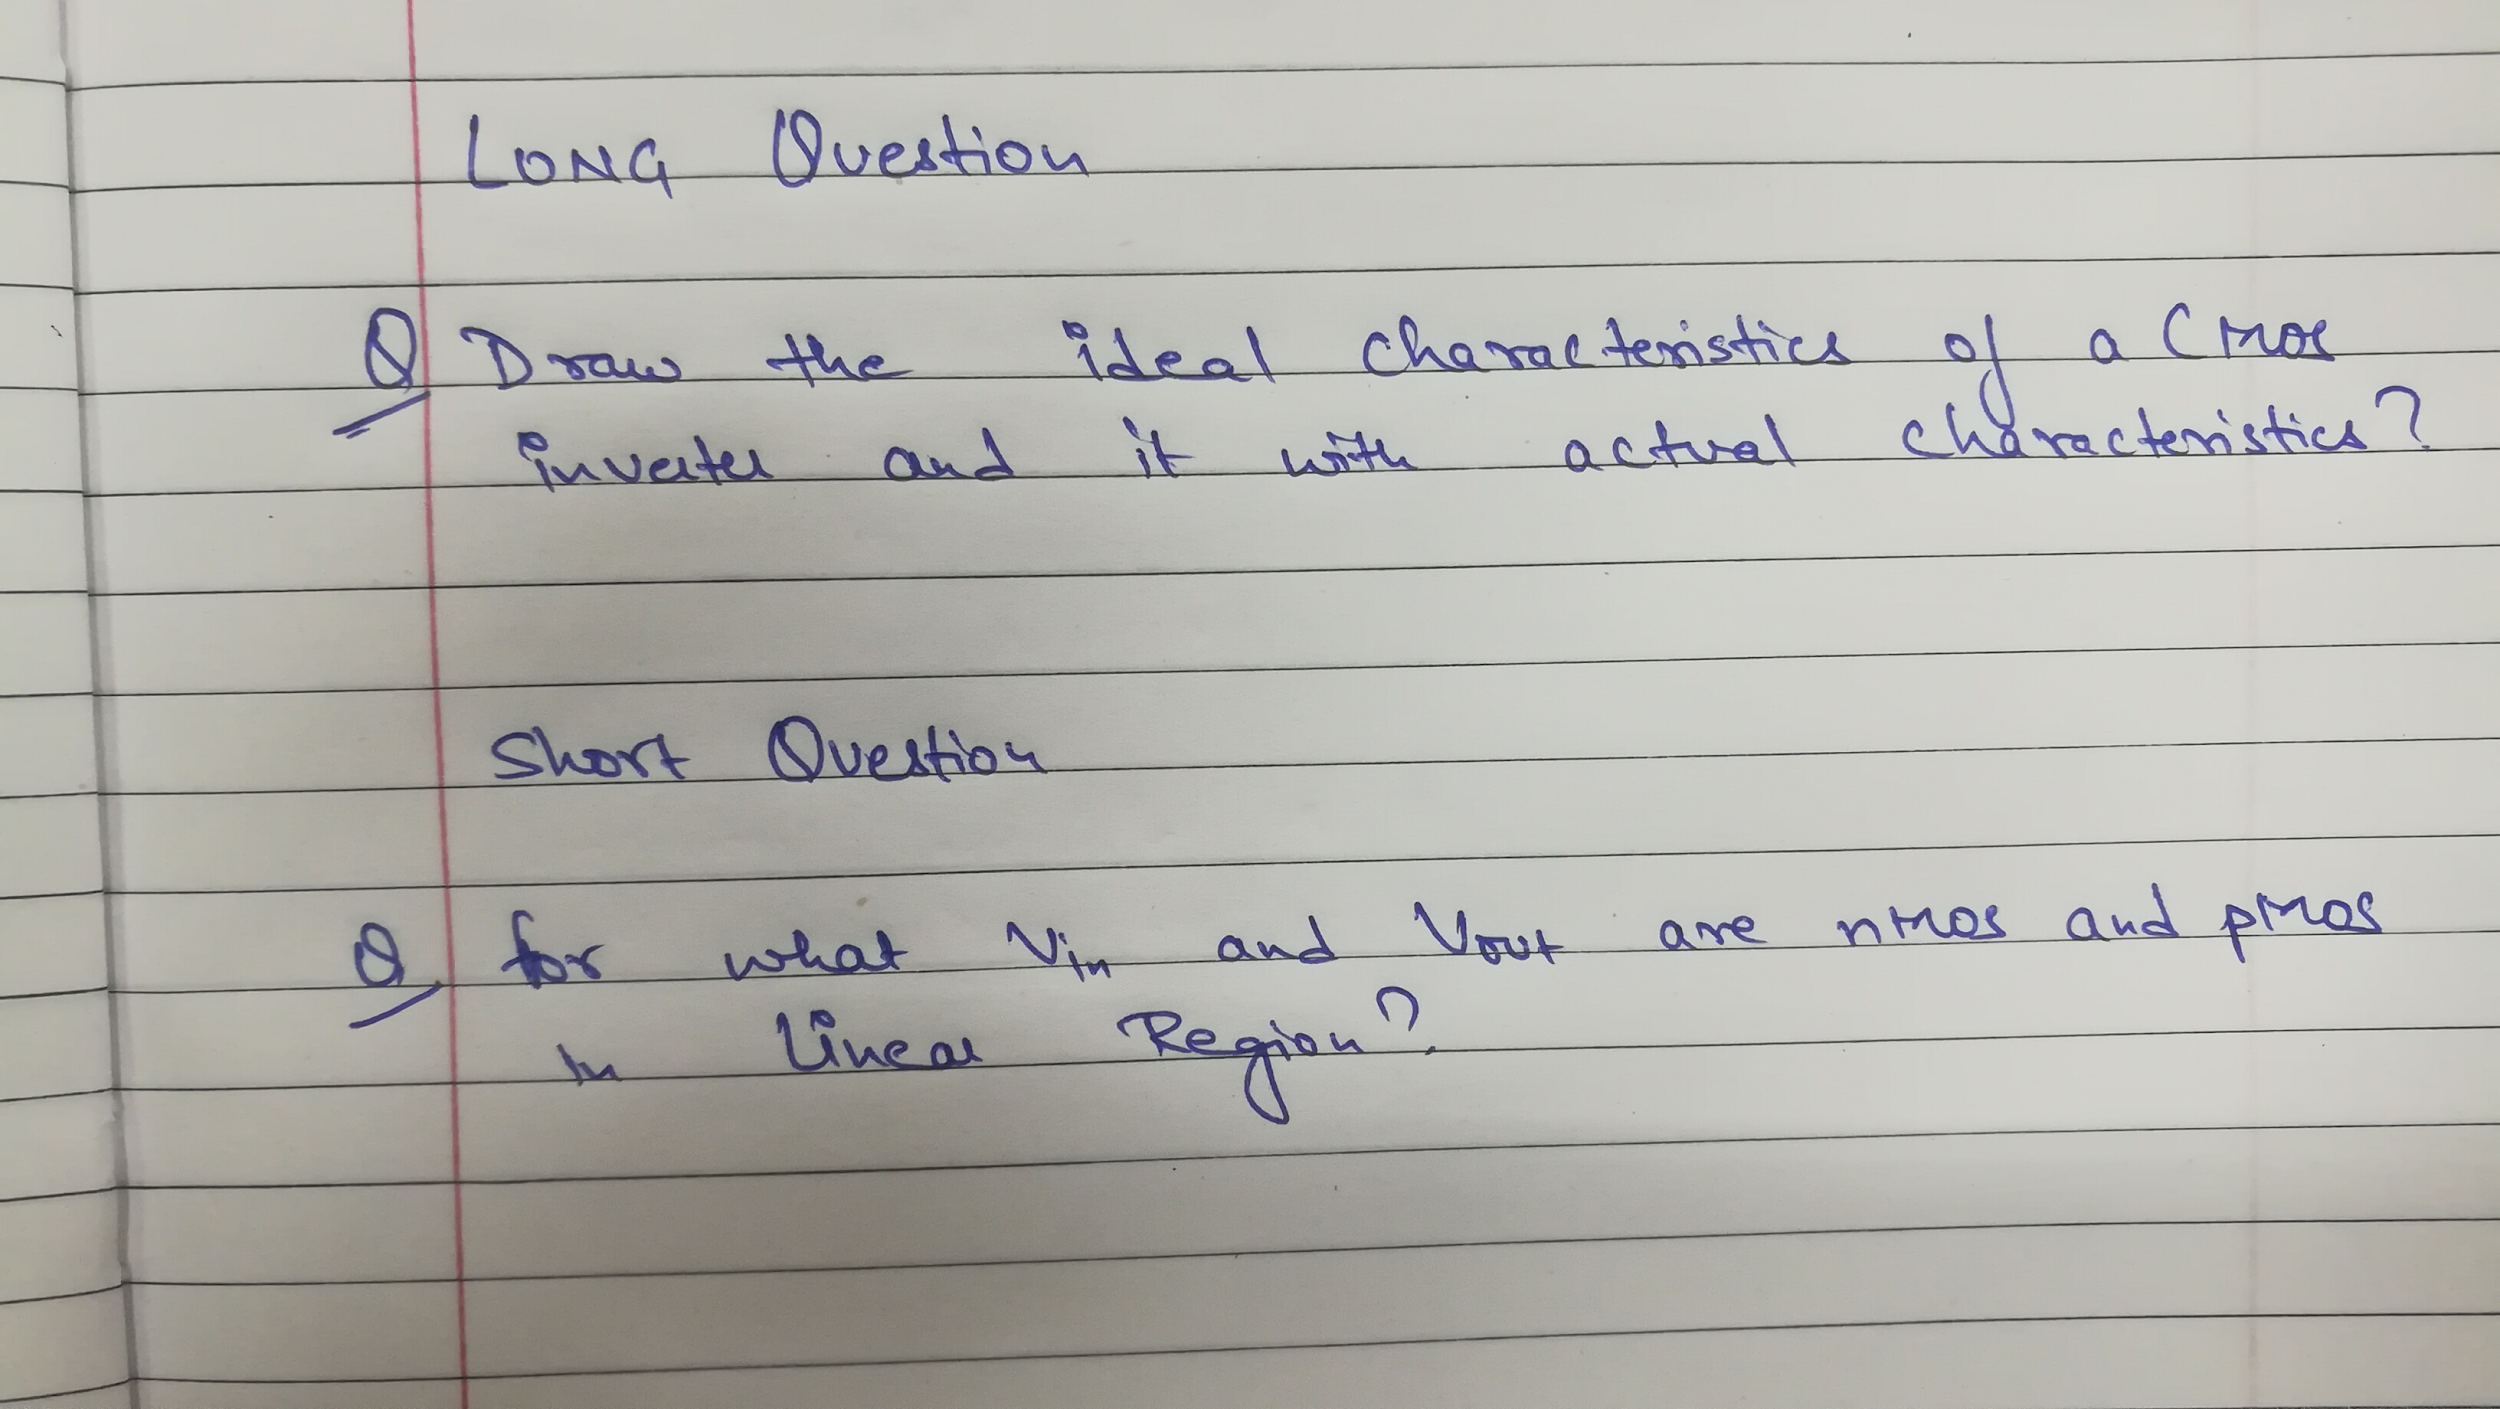 LONG Question
Q Draw the ideal characteristics of a CMOS
inverter and it with actual characteristics?
Short Question
Q. for what Vin and Vout are nMOS and pMOS
in Linear Region?